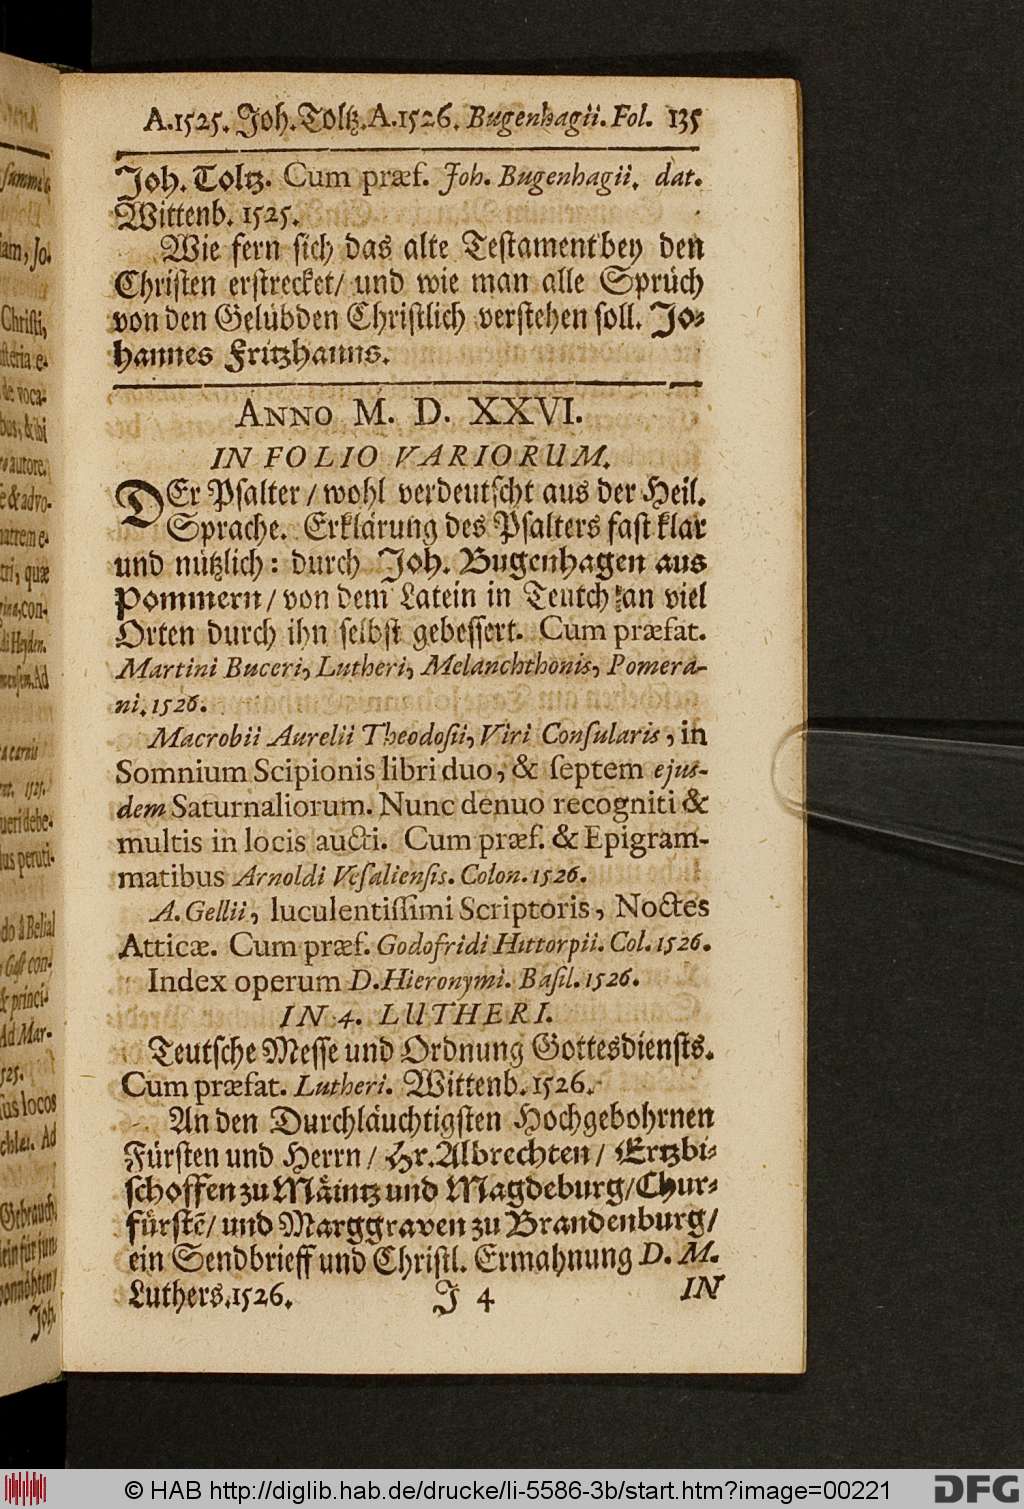 A.1525. Joh. Toltz. A.1526. Bugenhagii. Fol. 135
Joh. Toltz. Cum præf. Joh. Bugenhagii. dat.
Wittenb. 1525.
Wie fern sich das alte Testament bey den
Christen erstrecket/ und wie man alle Sprüch
von den Gelübden Christlich verstehen soll. Jo-
hannes Fritzhanns.
ANNO M. D. XXVI.
IN FOLIO VARIORUM.
DEr Psalter / wohl verdeutscht aus der Heil.
Sprache. Erklärung des Psalters fast klar
und nützlich: durch Joh. Bugenhagen aus
Pommern / von dem Latein in Teutsch an viel
Orten durch ihn selbst gebessert. Cum præfat.
Martini Buceri, Lutheri, Melanchthonis, Pomera-
ni. 1526.
Macrobii Aurelii Theodosii, Viri Consularis, in
Somnium Scipionis libri duo, & septem ejus-
dem Saturnaliorum. Nunc denuo recogniti &
multis in locis aucti. Cum præf. & Epigram-
matibus Arnoldi Vesaliensis. Colon. 1526.
A. Gellii, luculentissimi Scriptoris, Noctes
Atticæ. Cum præf. Godofridi Hittorpii. Col. 1526.
Index operum D. Hieronymi. Basil. 1526.
IN 4. LUTHERI.
Teutsche Messe und Ordnung Gottesdiensts.
Cum præfat. Lutheri. Wittenb. 1526.
An den Durchläuchtigsten Hochgebohrnen
Fürsten und Herrn / Hr. Albrechten / Ertzbi-
schoffen zu Mäintz und Magdeburg/ Chur-
fürstē/ und Marggraven zu Brandenburg/
ein Sendbrieff und Christl. Ermahnung D. M.
Luthers. 1526.
J 4
IN
summa
iam, Jo.
Christi,
de voca-
bus, & hi
autore.
& advo-
matrem e-
tri, quæ
con-
Heyden.
Ad
carnis
1525.
debe-
peruti-
à Belial
con-
princi-
Ad Mar-
525.
sus locos
Ad
Gebrauch
Joh.
© HAB http://diglib.hab.de/drucke/li-5586-3b/start.htm?image=00221
DFG